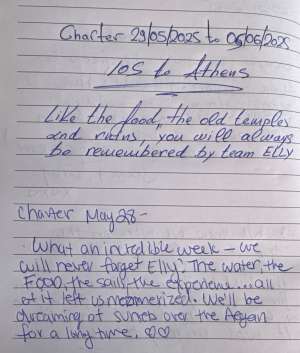 Charter 29/05/2025 to 06/06/2025
IOS to Athens
Like the food, the old temples
and ruins, you will always
be remembered by team ELLY
Charter May 28-
What an incredible week - we
will never forget Elly. The water, the
Food, the sails, the experience... all
of it left us mezmerized. We'll be
dreaming of sunsets over the Aegean
for a long time. ♡♡